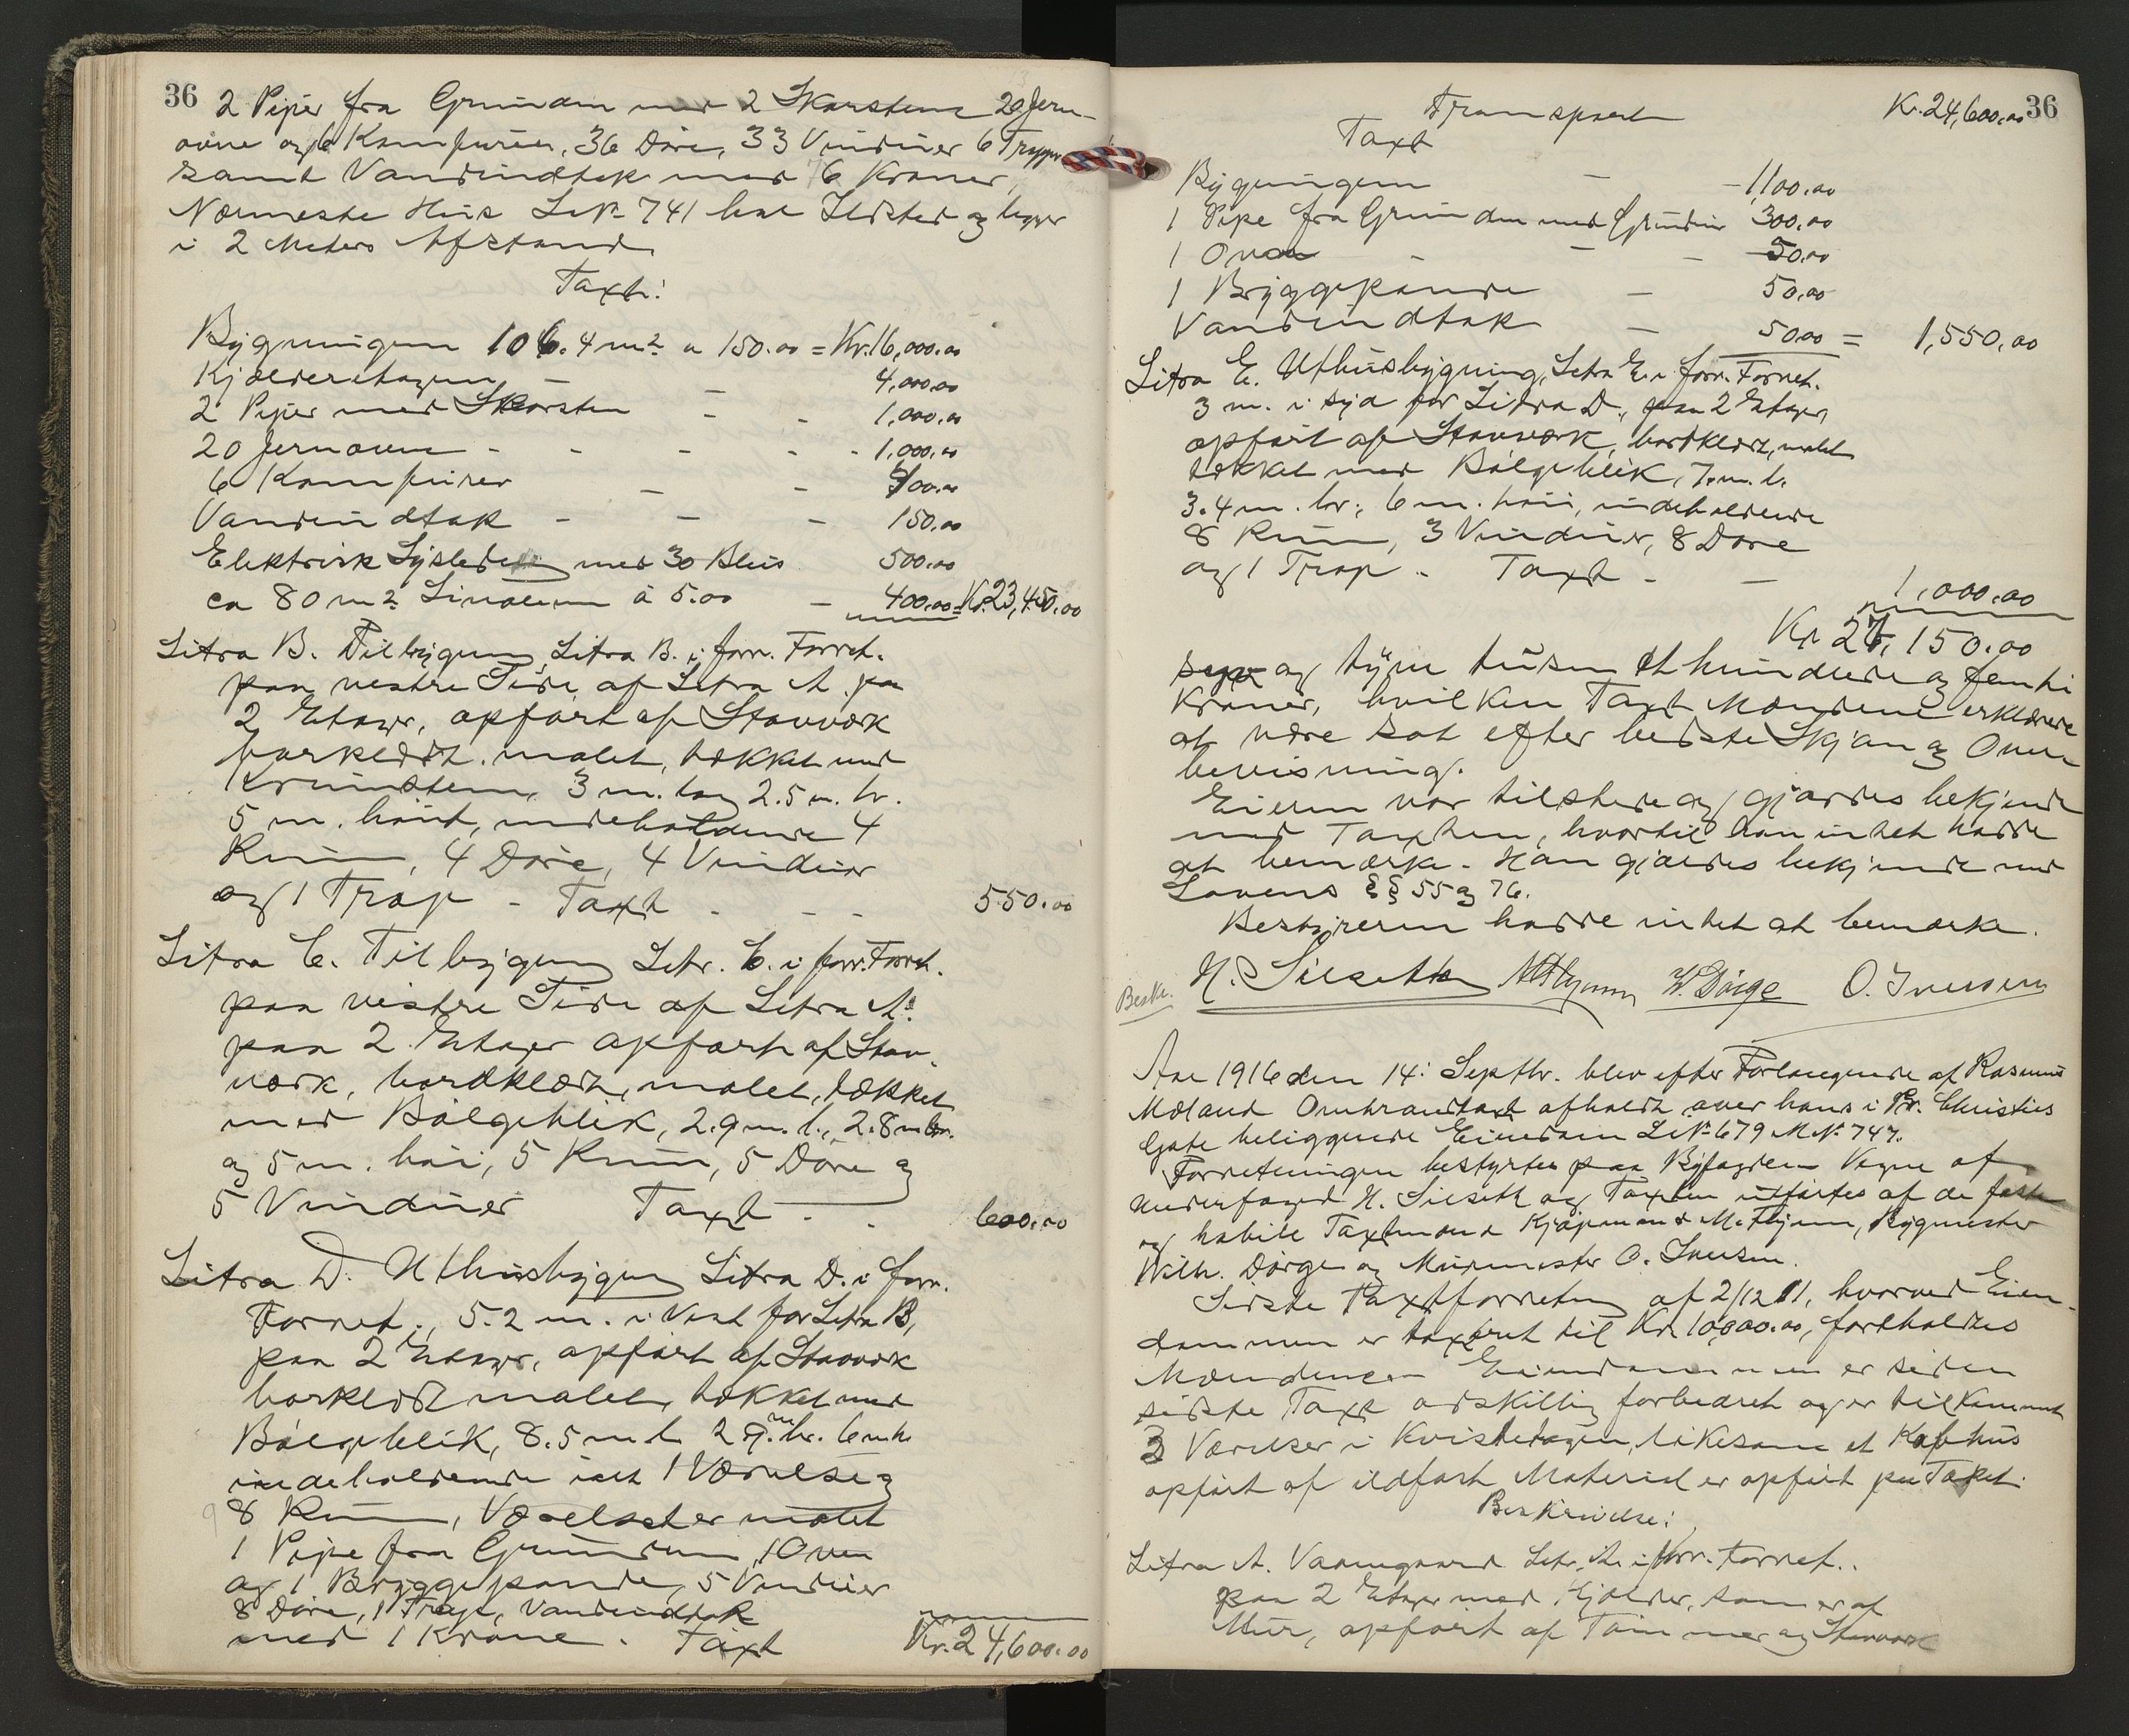 36
2 Piper fra Grunden med 2 Skorstene 20 Jern-
ovne og 6 Komfurer, 36 Döre, 33 Vinduer 6 Trapper
samt Vandindtak med 6 Kraner,
Nærmeste Hus LNr 741 har Ildsted og ligger
i 2 Meters Afstand.
Taxt:
Bygningen 106.4 m² a 150.00 = Kr. 16,000.00
Kjælderetagen - - 4,000.00
2 Piper med Skorsten - - 1,000.00
20 Jernovne - - - - - 1,000.00
6 Komfurer - - 400.00
Vandindtak - - - 150.00
Elektrisk Lysledning med 30 Blus 500.00
ca 80 m² Linoleum à 5.00 - 400.00 = Kr. 23,450.00
Litra B. Tilbygning, Litra B. i forr. Forret.
paa vestre Side af Litra A. paa
2 Etager, opfört af Stavværk
bordklædt, malet, tækket med
Krumsten, 3 m. lang 2.5 m. br.
5 m. höit, indeholdende 4
Rum, 4 Döre, 4 Vinduer
og 1 Trap - Taxt - - - 550.00
Litra C. Tilbygning Litr. C. i forr. Forret.
paa vestre Side af Litra A.
paa 2 Etager opfört af Stav-
værk, bordklædt, malet, tækket
med Bölgeblik, 2.9 m. l., 2.8 m br.
og 5 m. höi, 5 Rum, 5 Döre og
5 Vinduer Taxt - - 600.00
Litra D. Uthusbygning Litra D. i forr.
Forret., 5.2 m. i Vest for Litra B,
paa 2 Etager, opfört af Stavværk
bordklædt malet, tækket med
Bölgeblik, 8.5 m l. 2.9 m. br. 6 m h.
indeholdende 1 Værelse og
8 Rum, Værelset er malet
1 Pipe fra Grunden, 1 Ovn
og 1 Bryggepande, 5 Vinduer
8 Döre, 1 Trap, Vandindtak
med 1 Krane. Taxt
Kr. 24,600.00
Transport Kr. 24,600.00 36
Taxt
Bygningen - - 1,100.00
1 Pipe fra Grunden med Grunden 300.00
1 Ovn - - - 50.00
1 Bryggepande - 50.00
Vandindtak - 50.00 = 1,550.00
Litra E. Uthusbygning, Litra E. i forr. Forret.
3 m. i syd for Litra D., paa 2 Etager,
opfört af Stavværk, bordklædt, malet
tækket med Bölgeblik, 7. m. l.
3.4 m. br., 6 m. höi, indeholdende
8 Rum, 3 Vinduer, 8 Döre
og 1 Trap - Taxt - - 1,000.00
Kr. 27,150.00
syv og tyve tusen et hundrede og femti
Kroner, hvilken Taxt Mændene erklærede
at være sat efter bedste Skjön og Over-
bevisning.
Eieren var tilstede og gjordes bekjendt
med Taxten, hvortil han intet havde
at bemærke. Han gjordes bekjendt med
Lovens §§ 55 og 76.
Bestyreren havde intet at bemærke.
Beskr. N. Silseth W. Dörge O. Iversen
Aar 1916 den 14. Septbr. blev efter Forlangende af Rasmus
Mæland Ombrandtaxt afholdt over hans i Vr. Christies
Gate beliggende Eiendom LNr 679 MNr 747.
Forretningen bestyrtes paa Byfogdens Vegne af
underfoged N. Silseth og Taxten utförtes af de faste
og habile Taxtmænd Kjöpmand M. Flynn, Bygmester
Wilh. Dörge og Murmester O. Iversen.
Sidste Taxtforretning af 2/12 11, hvorved Eien-
dommen er taxeret til Kr. 10,000.00, foreholdtes
Mændene. Eiendommen er siden
sidste Taxt adskillig forbedret og er tilkommet
3 Værelser i Kvistetagen, likesom et Kophus
opfört af ildfast Materiel er opfört paa Taket.
Beskrivelse:
Litra A. Vaaningsgaard Litr. A. i forr. Forret..
paa 2 Etager med Kjælder, som er af
Mur, opfört af Tömmer og Stavværk